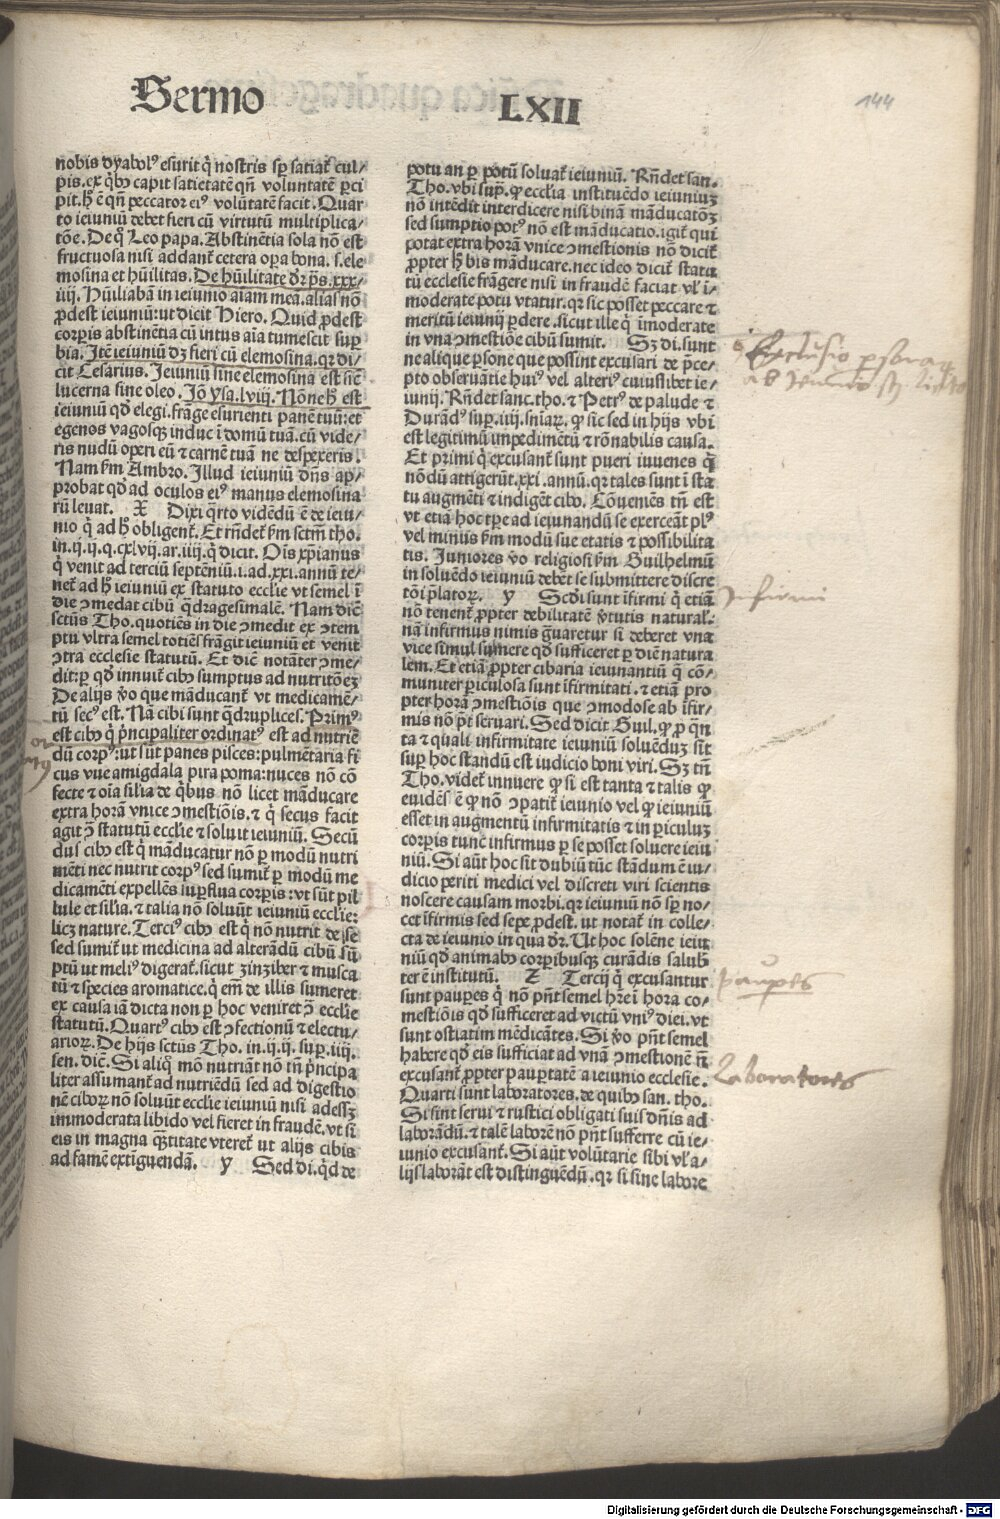 Sermo LXII
144
nobis dyabolꝰ esurit q̇ nostris sꝑ satiat᷑ cul⸗
pis. ex q̇bꝰ capit satietatē qñ voluntatē ꝑci
pit. hͦ ē qñ peccator eiꝰ volūtatē facit. Quar
to ieiuniū debet fieri cū virtutū multiplica⸗
tōe. De q̊ Leo papa. Abstinētia sola nō est
fructuosa nisi addant᷑ cetera oꝑa bona. s. ele
mosina et hūilitas. De hūilitate dr̄ p̄s. xxx⸗
iiij. Hūiliabā in ieiunio aīam mea. alias nō
ꝓdest ieiuniū: ut dicit Hiero. Quid ꝓdest
corꝑis abstinētia cū intus aīa tumescit suꝑ
bia. Itē ieiuniū dꝫ fieri cū elemosina. qꝛ di⸗
cit Cesarius. Ieiuniū sine elemosina est sic̄
lucerna sine oleo. Iō ysa. lviij. Nōne hͦ est
ieiuniū qd̄ elegi. frāge esurienti panē tuū: et
egenos vagosqꝫ induc ī domū tuā. cū vide⸗
ris nudū operi eū ⁊ carnē tuā ne despexeris.
Nam ẜm Ambro. Illud ieiuniū dn̄s ap⸗
probat qd̄ ad oculos eiꝰ manus elemosina
rū leuat. X Dixi q̇rto vidēdū ē de ieiu⸗
nio q̇ ad hͦ obligent᷑. Et rn̄det᷑ ẜm sctm̄ tho.
in. ij. ij. q. cxlvij. ar. iiij. q̇ dicit. Oīs xp̄ianus
q̇ venit ad terciū septēniū. i. ad. xxi. annū te⸗
net᷑ ad hͦ ieiuniū ex statuto ecclie vt semel ī
die ꝯmedat cibū q̈dragesimalē. Nam diē
sctūs Tho. quotiēs in die ꝯmedit ex ꝯtem
ptu vltra semel totiēs frāgit ieiuniū et venit
ꝯtra ecclesie statutū. Et diē notāter ꝯme⸗
dit: ꝑ qd̄ innuit᷑ cibꝰ sumptus ad nutritōeꝫ
De alijs v̊o que māducant᷑ vt medicamē⸗
tū secꝰ est. Nā cibi sunt q̈druplices. Primꝰ
est cibꝰ q̇ p̄ncipaliter ordinatꝰ est ad nutriē
dū corpꝰ: ut sūt panes pisces: pulmētaria fi
cus vue amigdala pira poma: nuces nō cō
fecte ⁊ oīa sīlia de q̇bus nō licet māducare
extra horā vnice ꝯmestiōis. ⁊ q̇ secus facit
agit ꝯ̄ statutū ecclie ⁊ soluit ieiuniū. Secū
dus cibꝰ est q̇ māducatur nō ꝑ modū nutri
mēti nec nutrit corpꝰ sed sumit᷑ ꝑ modū me
dicamēti expellēs suꝑflua corꝑis: vt sūt pil
lule et sīlīa. ⁊ talia nō soluūt ieiuniū ecclie:
licꝫ nature. Terciꝰ cibꝰ est q̇ nō nutrit de se
sed sumit᷑ ut medicina ad alterādū cibū sū⸗
ptū ut meliꝰ digerat᷑. sicut zinziber ⁊ musca
tū ⁊ species aromatice. q̇ em̄ de illis sumeret
ex causa iā dicta non ꝑ hoc veniret ꝯ̄ ecclie
statutū. Quartꝰ cibꝰ est ꝯfectionū ⁊ electu⸗
arioꝝ. De hijs sctūs Tho. in. ij. ij. suꝑ. iiij.
sen. diē. Si aliq̇ mō nutriāt nō tn̄ p̄ncipa
liter assumant᷑ ad nutriēdū sed ad digestio
nē ciboꝝ nō soluūt ecclie ieiuniū nisi adesꝫ
immoderata libido vel fieret in fraudē. vt si
eis in magna q̈titate vteret᷑ ut alijs cibis
ad famē extinguendā. y Sed di. q̇d de
potu an ꝑ potū soluat᷑ ieiuniū. Rn̄det san.
Tho. vbi suꝑ. ꝙ ecclīa instituēdo ieiuniuꝫ
nō intēdit interdicere nisi binā māducatōꝫ
sed sumptio potꝰ nō est māducatio. igit᷑ qui
potat extra horā vnice ꝯmestionis nō dicit᷑
ꝓpter hͦ bis māducare. nec ideo dicit᷑ statu
tū ecclesie frāgere nisi in fraudē faciat vl̓ ī⸗
moderate potu vtatur. qꝛ sic posset peccare ⁊
meritū ieiunij ꝑdere. sicut ille q̇ īmoderate
in vna ꝯmestiōe cibū sumit. Sꝫ di. sunt
ne alique ꝑsone que possint excusari de p̄ce⸗
pto obseruātie huiꝰ vel alteriꝰ cuiuslibet ie⸗
iunij. Rn̄det sanc. tho. ⁊ Petrꝰ de palude ⁊
Durādꝰ suꝑ. iiij. sn̄iaꝝ. ꝙ sic sed in hijs vbi
est legitimū impedimētū ⁊ rōnabilis causa.
Et primi q̇ excusant᷑ sunt pueri iuuenes q̇
nōdū attigerūt. xxi. annū. qꝛ tales sunt ī sta
tu augmēti ⁊ indigēt cibo. Cōueniēs tn̄ est
vt etiā hoc tꝑe ad ieiunandū se exerceāt plꝰ
vel minus ẜm modū sue etatis ⁊ possibilita
tis. Iuniores v̊o religiosi ẜm Guilhelmū
in soluēdo ieiuniū debēt se submittere discre
tōi p̄latoꝝ. y Scd̓i sunt īfirmi q̇ etiā
nō tenent᷑ ꝓpter debilitatē v̓tutis natural᷑:
nā infirmus nimis g̈uaretur si deberet vna
vice simul sumere qd̄ sufficeret ꝑ diē natura
lem. Et etiā ꝓpter cibaria ieiunantiū q̄ cō⸗
muniter ꝑiculosa sunt īfirmitati. ⁊ etiā pro
pter horā ꝯmestiōis que ꝯmodose ab īfir⸗
mis nō pōt seruari. Sed dicit Guil. ꝙ ꝑ q̄n
ta ⁊ quali infirmitate ieiuniū soluēduꝫ sit
suꝑ hoc standū est iudicio boni viri. Sꝫ tn̄
Tho. videt᷑ innuere ꝙ si est tanta ⁊ talis ꝙ
euidēs ē ꝙ nō ꝯpatit᷑ ieiunio vel ꝙ ieiuniū
esset in augmentū infirmitatis ⁊ in ꝑiculuꝫ
corꝑis tunc infirmus ꝑ se posset soluere ieiu
niū. Si aūt hoc sit dubiū tūc stādum ē iu⸗
dicio periti medici vel discreti viri scientis
noscere causam morbi. qꝛ ieiuniū nō sꝑ no⸗
cet īfirmis sed sepe ꝓdest. ut notat᷑ in colle⸗
cta de ieiunio in qua dr̄. Ut hoc solēne ieiu
niū qd̄ animabꝰ corꝑibusqꝫ curādis salubͬ
ter ē institutū. Z Tercij q̇ excusantur
sunt pauꝑes q̇ nō pn̄t semel hr̄e ī hora co⸗
mestiōis qd̄ sufficeret ad victū vniꝰ diei. vt
sunt ostiatim mēdicātes. Si v̊o pn̄t semel
habere qd̄ eis sufficiat ad vnā ꝯmestionē n̄
excusant᷑ ꝓpter pauꝑtatē a ieiunio ecclesie.
Quarti sunt laboratores. de quibꝰ san. tho.
Si sint serui ⁊ rustici obligati suis dn̄is ad
laborādū. ⁊ talē laborē nō pn̄t sufferre cū ie⸗
iunio excusant᷑. Si aūt volūtarie sibi vl̓ a⸗
lijs laborāt est distinguēdū. qꝛ si sine labore
Infirmi
pauꝑes
Laboratores
Digitalisierung gefördert durch die Deutsche Forschungsgemeinschaft - DFG